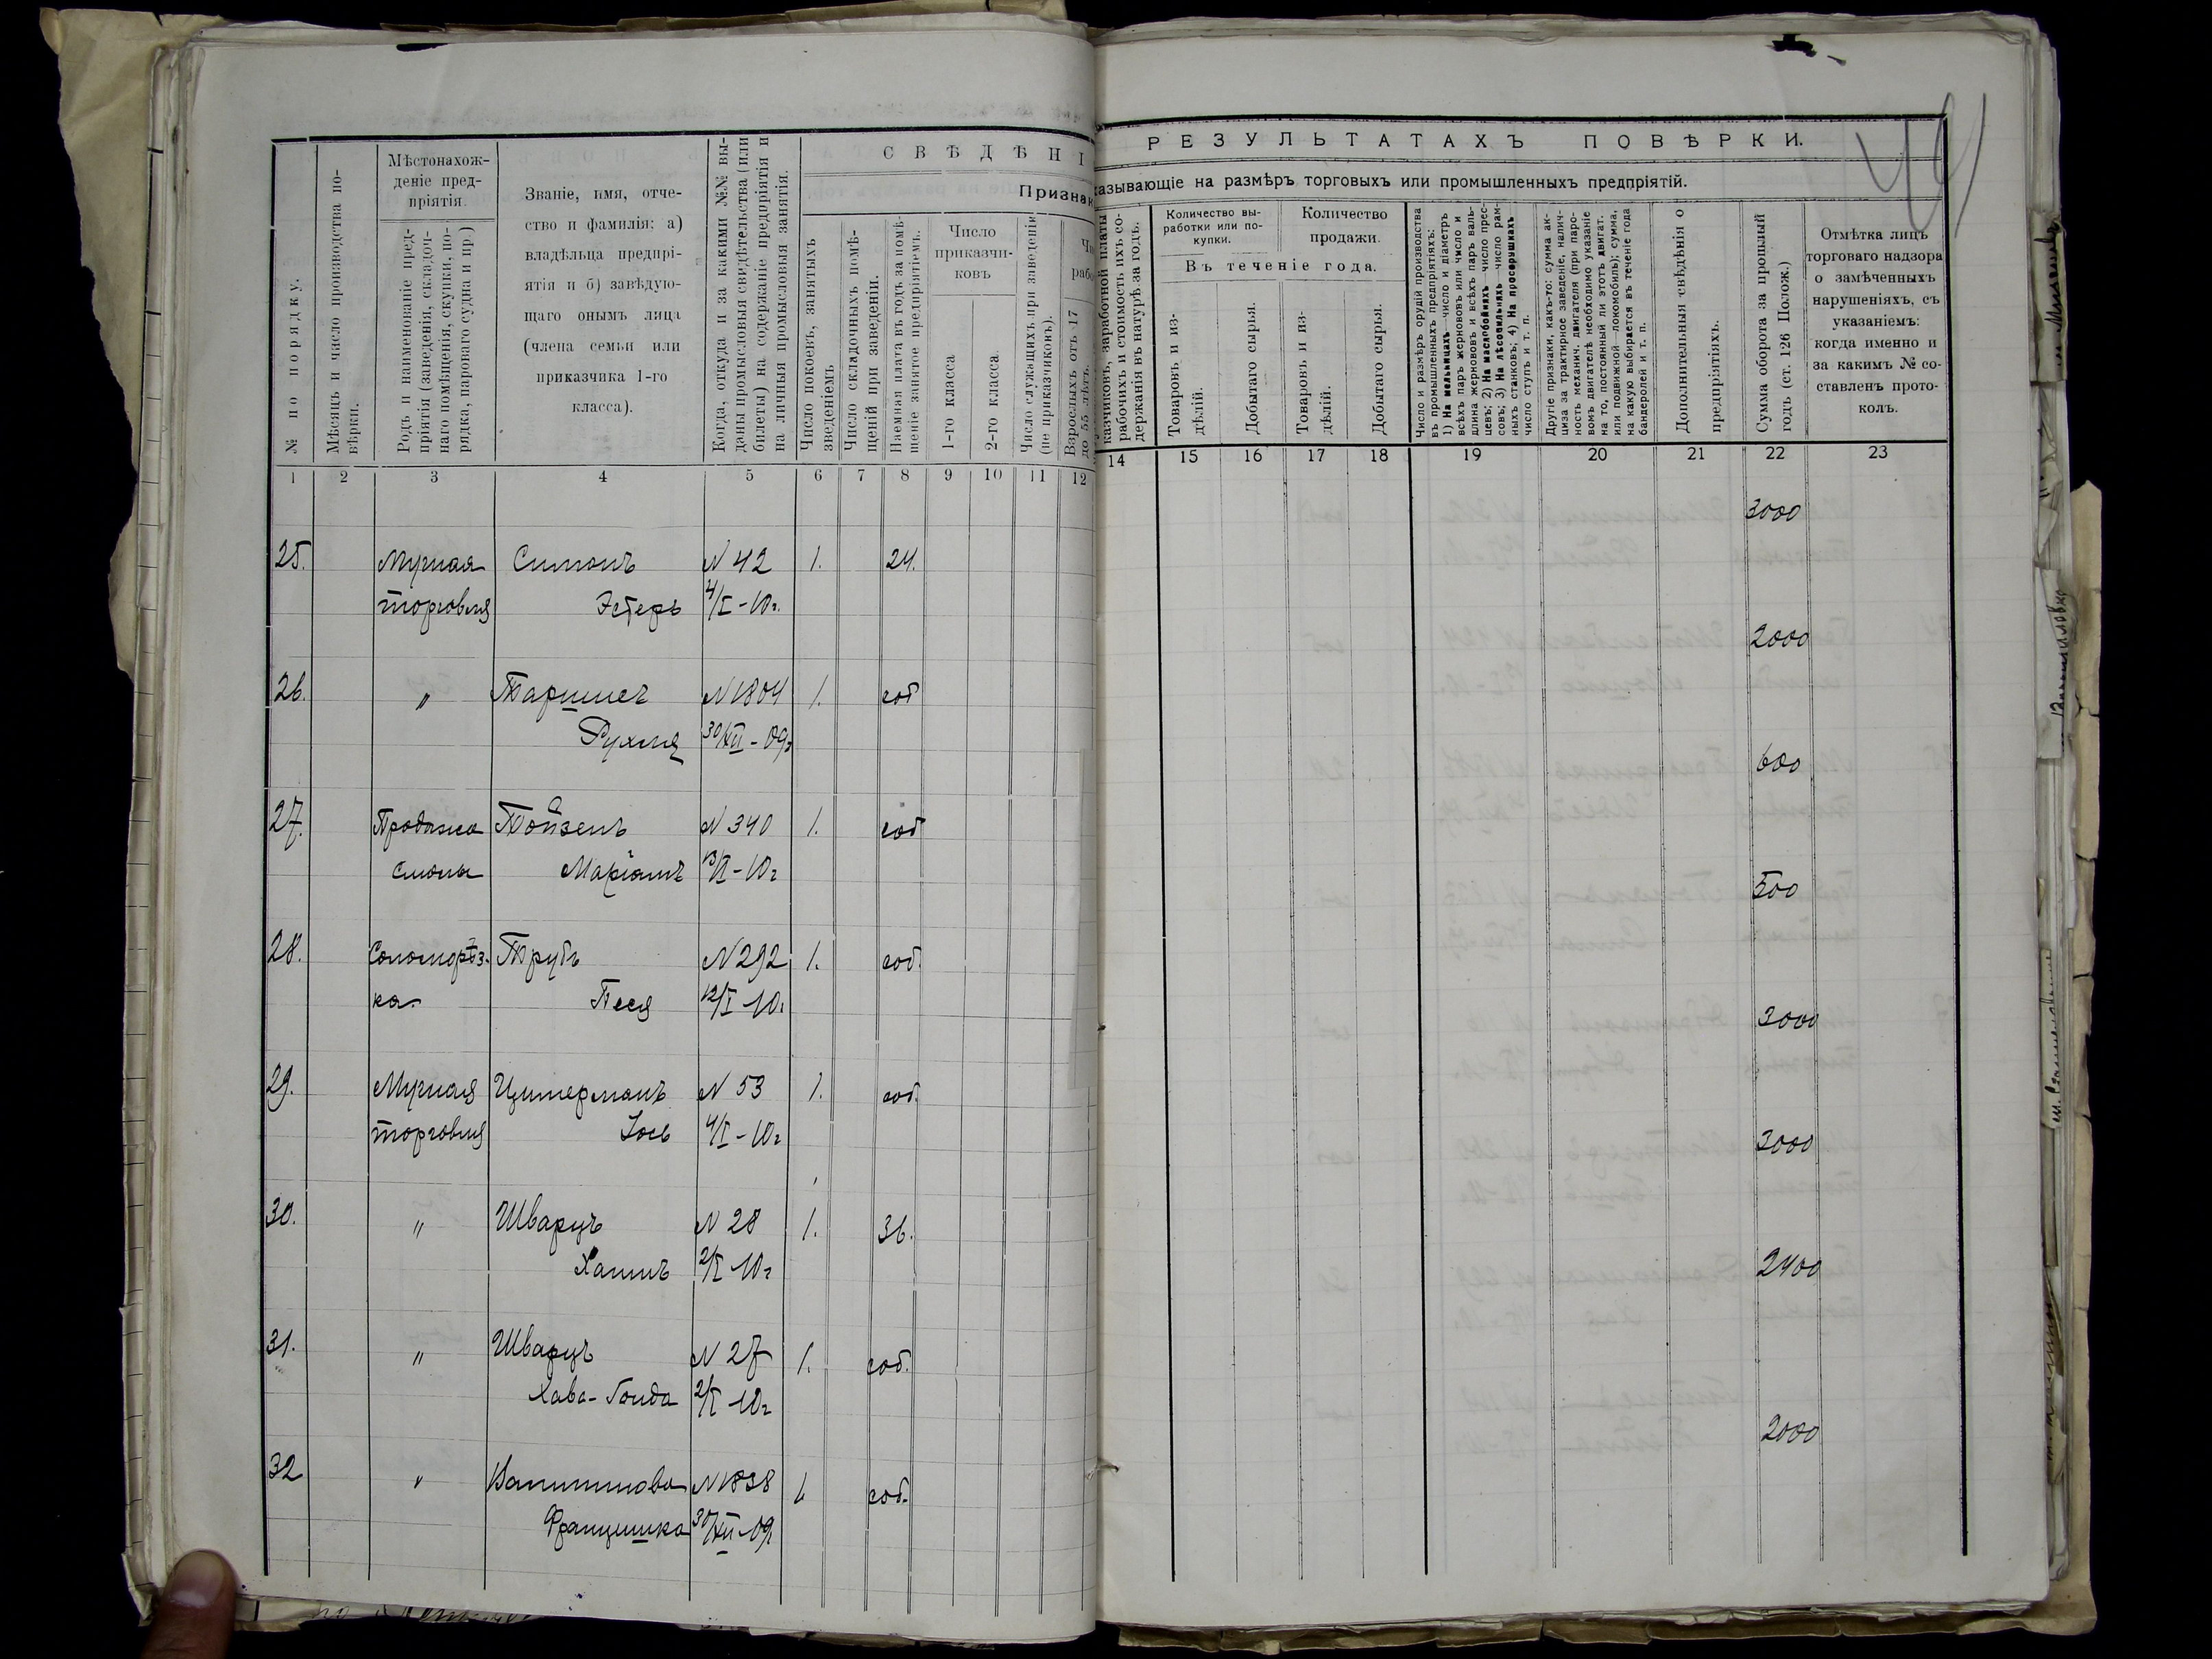 СВѢДѢНІ
РЕЗУЛЬТАТАХЪ ПОВѢРКИ.
Признак
казывающіе на размѣръ торговыхъ или промышленныхъ предпріятій.
№ по порядку.
Мѣсяцъ и число производства по-
вѣрки.
Мѣстонахож-
деніе пред-
пріятія.
Родъ и наименованіе пред-
пріятія (заведенія, складоч-
наго помѣщенія, скупки, по-
рядка, пароваго судна и пр.)
Званіе, имя, отче-
ство и фамилія: а)
владѣльца предпрі-
ятія и б) завѣдую-
щаго онымъ лица
(члена семьи или
приказчика 1-го
класса).
Когда, откуда и за какими №№ вы-
даны промысловыя свидѣтельства (или
билеты) на содержаніе предпріятія и
на личныя промысловыя занятія.
Число покоевъ, занятыхъ
зведеніемъ
Число складочныхъ помѣ-
щеній при заведеніи.
Наемная плата въ годъ за помѣ-
щеніе занятое предпріятіемъ.
Число
приказчи-
ковъ
1-го класса
2-го класса.
Число служащихъ при заведеніи
(не приказчиковъ).
Чи
рабо
Взрослыхъ отъ 17
до 55 лѣтъ.
казчиковъ, заработной платы
рабочихъ и стоимость ихъ со-
держанія въ натурѣ за годъ.
Количество вы-
работки или по-
купки.
Количество
продажи.
Въ теченіе года.
Товаровъ и из-
дѣлій.
Добытаго сырья.
Товаровъ и из-
дѣлій.
Добытаго сырья.
Число и размѣръ орудій производства
въ промышленныхъ предпріятіяхъ:
1) На мельницахъ число и діаметръ
всѣхъ паръ жернововъ или число и
длина жернововъ и всѣхъ паръ валь-
цевъ; 2) На маслобойняхъ число прес-
совъ; 3) На лѣсопильняхъ число рам-
ныхъ станковъ; 4) На просорушняхъ
число ступъ и т. п.
Другіе признаки, какъ-то: сумма ак-
циза за трактирное заведеніе, налич-
ность механич. двигателя (при паро-
вомъ двигателѣ необходимо указаніе
на то, постоянный ли этотъ двигат.
или подвижной -локомобиль); сумма,
на какую выбирается въ теченіе года
бандеролей и т. п.
Дополнительныя свѣдѣнія о
предпріятіяхъ.
Сумма оборота за прошлый
годъ (ст. 126 Полож.)
Отмѣтка лицъ
торговаго надзора
о замѣченныхъ
нарушеніяхъ, съ
указаніемъ:
когда именно и
за какимъ № со-
ставленъ прото-
колъ.
1 2 3 4 5 6 7 8 9 10 11 12 14 15 16 17 18 19 20 21 22 23
3000
25. Мучная Симонъ N 42 1. 24.
торговля Эстеръ 4/I - 10г.
2000
26. " Таршисъ N 1804 1. соб
Рухля 30/XII - 09г
600
27. Продажа Тойзенъ N 340 1. соб
смолы Маріамъ 13/II - 10г
500
28. Соломорѣз- Трубъ N 292 1. соб.
ка. Песя 12/I 10г
3000
29. Мучная Цимерманъ N 53 1. соб.
торговля Іось 4/I - 10г
3000
30. " Шварцъ N 28 1. 36.
Хаимъ 2/I 10г
2400
31. " Шварцъ N 27 1. соб.
Хава-Голда 2/I 10г
2000
32 " N 1838 1 соб.
Францишка 30/XII -09г